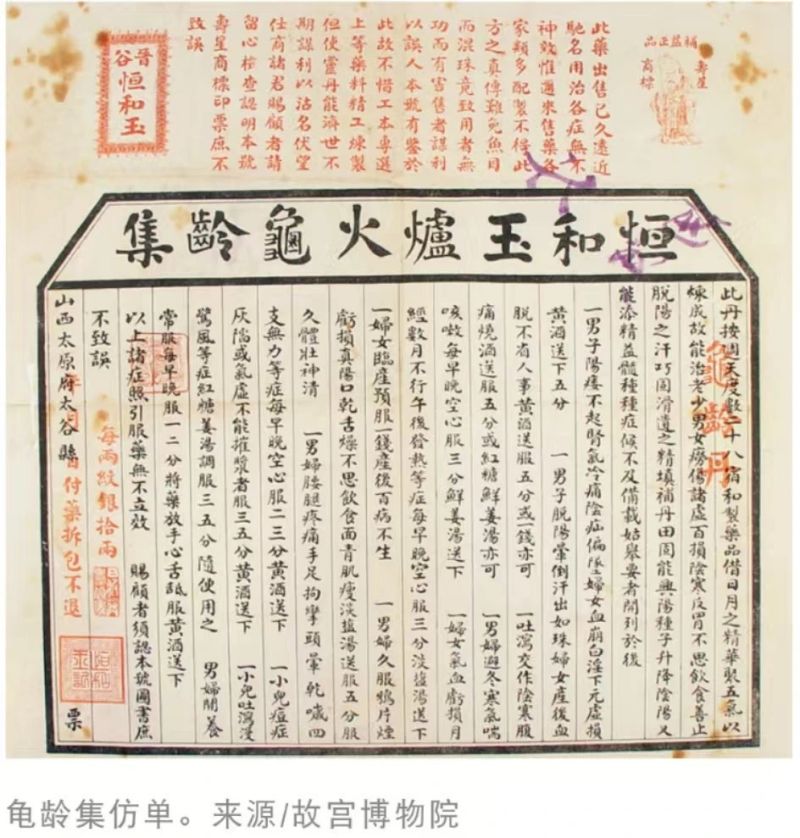 補益正品
壽星
商標
此藥出售已久遠近
馳名用治各症無不
神效惟邇來售藥各
家類多配製不得此
方之真傳難免魚目
而混珠竟致用者無
功而有害售者謀利
以誤人本號有鑒於
此故不惜工本專選
上等藥料精工煉製
但使靈丹能濟世不
期謀利以沽名伏望
仕商諸君賜顧者請
留心檢查認明本號
壽星商標印票庶不
致誤
晉谷
恒和玉
恒和玉爐火龜齡集
龜齡丹
此丹按週天度數二十八宿和製藥品借日月之精華製五氣以
煉成故能治老少男女癆傷諸虛百損陰寒反胃不思飲食善止
脫陽之汗巧固滑遺之精填補丹田固能興陽種子升降陰陽又
能添精益髓種種症候不及備載姑舉要者開列於後
一男子陽痿不起腎氣冷痛陰疝偏墜 婦女血崩白淫下元虛損
黃酒送下五分 一男子脫陽暈倒汗出如珠婦女產後血
脫不省人事黃酒送服五分或一錢亦可 一吐瀉交作陰寒腹
痛燒酒送服五分或紅糖鮮姜湯亦可 一男婦遇冬寒氣喘
咳嗽每早晚空心服三分鮮姜湯送下 一婦女氣血虧損月
經數月不行午後發熱等症每早晚空心服三分淡塩湯送下
一婦女臨產預服一錢產後百病不生 一男婦久服鴉片煙
虧損真陽口乾舌燥不思飲食面青肌瘦淡塩湯送服五分服
久體壯神清 一男婦腰腿疼痛手足拘攣頭暈乾嘁四
支無力等症每早晚空心服二三分黃酒送下 一小兒痘症
灰陷或氣虛不能摧漿者服三五分黃酒送下 一小兒吐瀉漫
驚風等症紅糖姜湯調服三五分隨使用之 男婦閒養
常服每早晚服一二分將藥放手心舌舐服黃酒送下
以上諸症照引服藥無不立效 賜顧者須認本號圖書庶
不致誤
每兩紋銀拾兩
付藥拆包不退
山西太原府太谷縣
票
龟龄集仿单。来源/故宫博物院